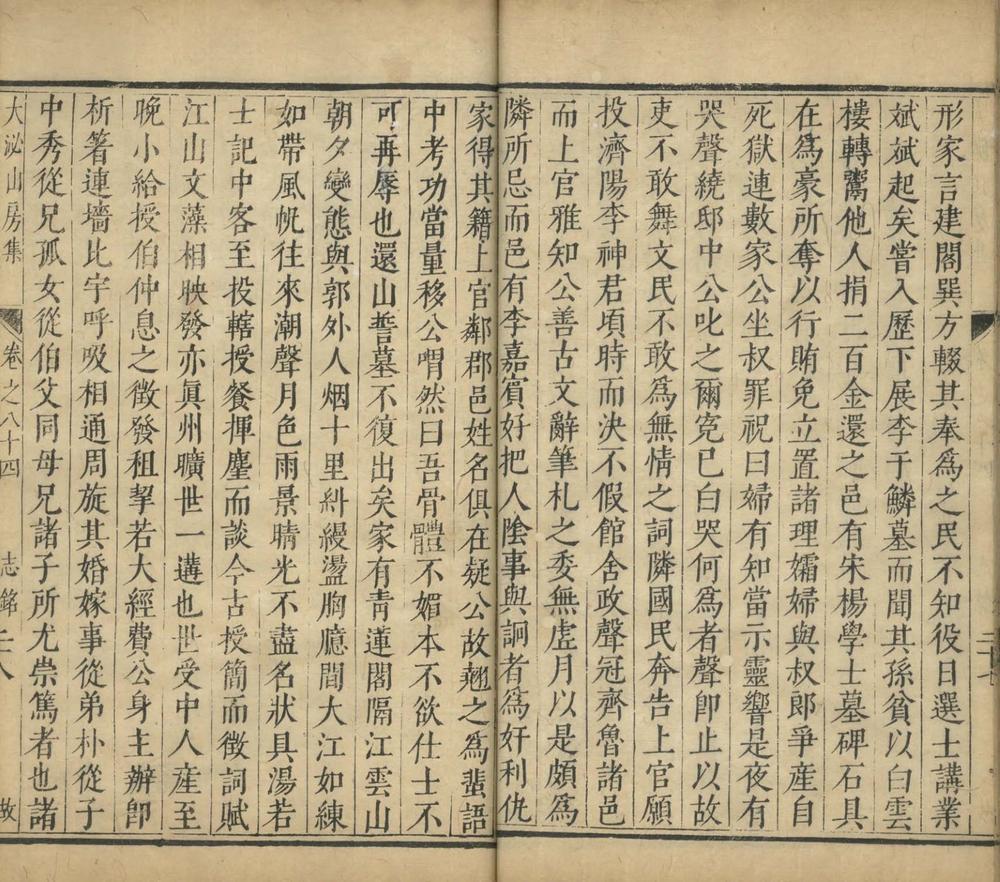 形家言建閣巽方輟其奉爲之民不知役日選士講業
斌斌起矣嘗入歷下展李于鱗墓而聞其孫貧以白雲
樓轉鬻他人捐二百金還之邑有朱楊學士墓碑石具
在爲豪所奪以行賄免立置諸理孀婦與叔郎爭產自
死獄連數家公坐叔罪祝曰婦有知當示靈響是夜有
哭聲繞邸中公叱之爾寃已白哭何爲者聲卽止以故
吏不敢舞文民不敢爲無情之詞隣國民奔告上官願
投濟陽李神君頃時而決不假館舍政聲冠齊魯諸邑
而上官雅知公善古文辭筆札之委無虛月以是頗爲
隣所忌而邑有李嘉賓好把人陰事與詗者爲奸利仇
家得其籍上官鄰郡邑姓名俱在疑公故趐之爲蜚語
中考功當量移公喟然曰吾骨體不媚本不欲仕士不
可再辱也還山誓墓不復出矣家有靑蓮閣隔江雲山
朝夕變態與郭外人烟十里糾縵盪胸臆間大江如練
如帶風帆往來潮聲月色雨景晴光不盡名狀具湯若
士記中客至投轄授餐揮麈而談今古授簡而徵詞賦
江山文藻相映發亦眞州曠世一遘也世受中人產至
晚小給授伯仲息之徵發租挈若大經費公身主辦卽
析箸連墻比宇呼吸相通周旋其婚嫁事從弟朴從子
中秀從兄孤女從伯父同母兄諸子所尤崇篤者也諸
大泌山房集 卷之八十四 志銘 二八 故